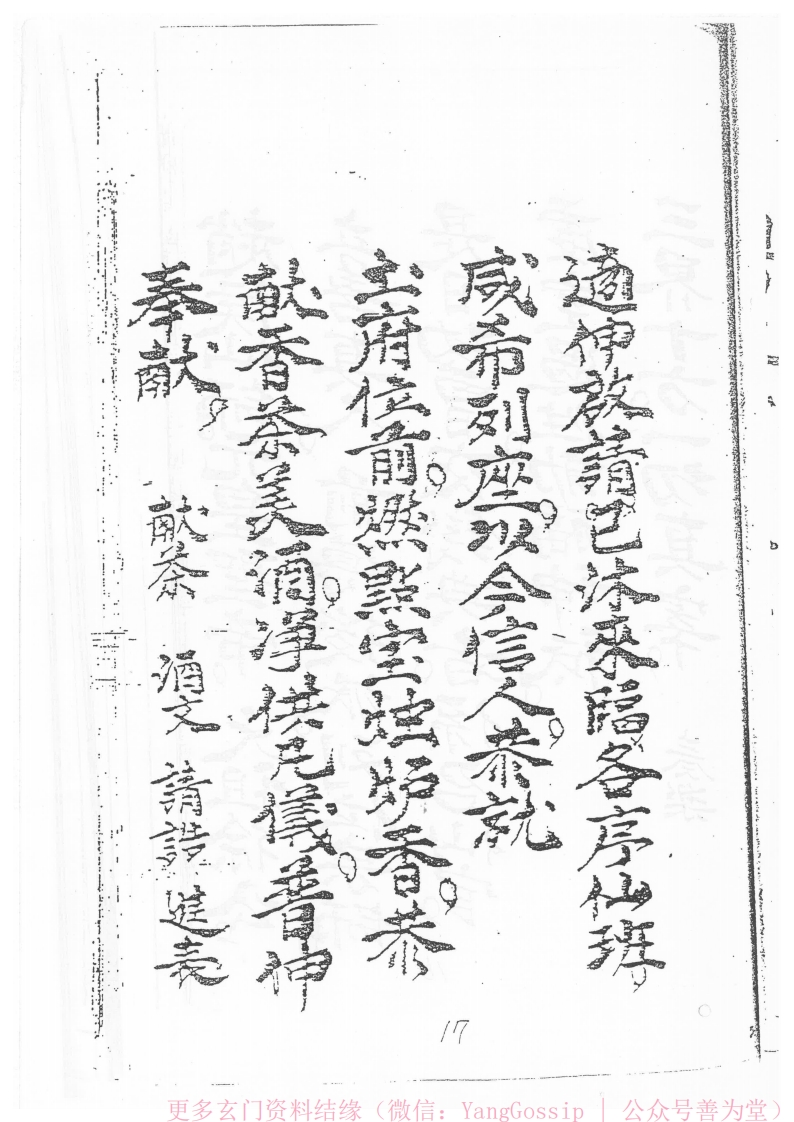 適伸啟請已沐來臨各序仙班
咸希列座次今信人恭就
玉府位前燃點宝炷炉香恭
献香茶美酒净供凡儀普伸
奉献 献茶 酒文 請誥 進表
17
更多玄门资料结缘（微信：YangGossip | 公众号善为堂）